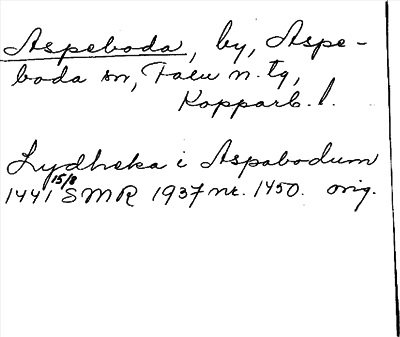 Aspeboda, by, Aspe-
boda sn, Falu n. tg,
Kopparb. l.
Lydheka i Aspabodum
1441 15/8 SMR 1937 nr. 1450. orig.